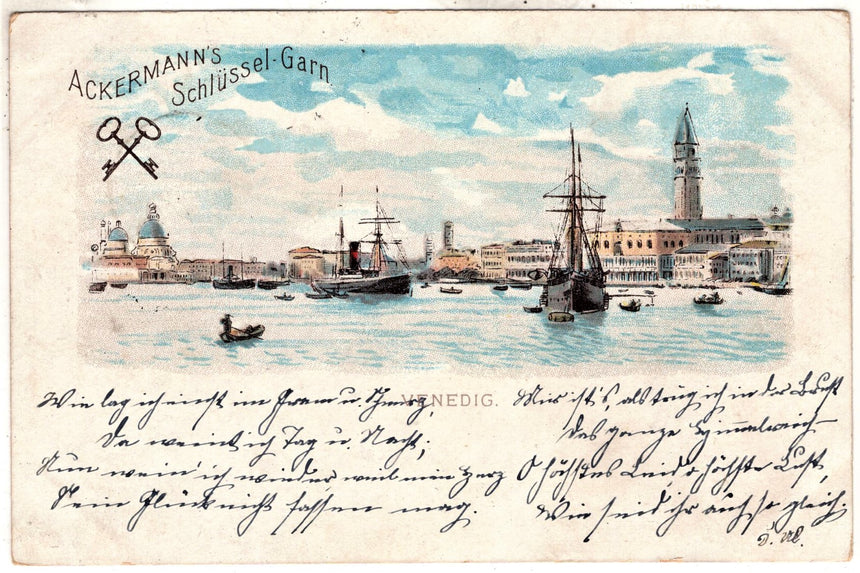 ACKERMANN'S
Schlüssel-Garn
VENEDIG.
Wie lag ich einst im Gram u. Schmerz,
Da weint ich Tag u. Nacht;
Nun wein' ich wieder weil mein Herz
Sein Glück nicht fassen mag.
Mir ist's, als trüg ich in der Brust
Das ganze Himmelreich
O höchstes Leid o höchste Lust,
Wie seid ihr euch so gleich.